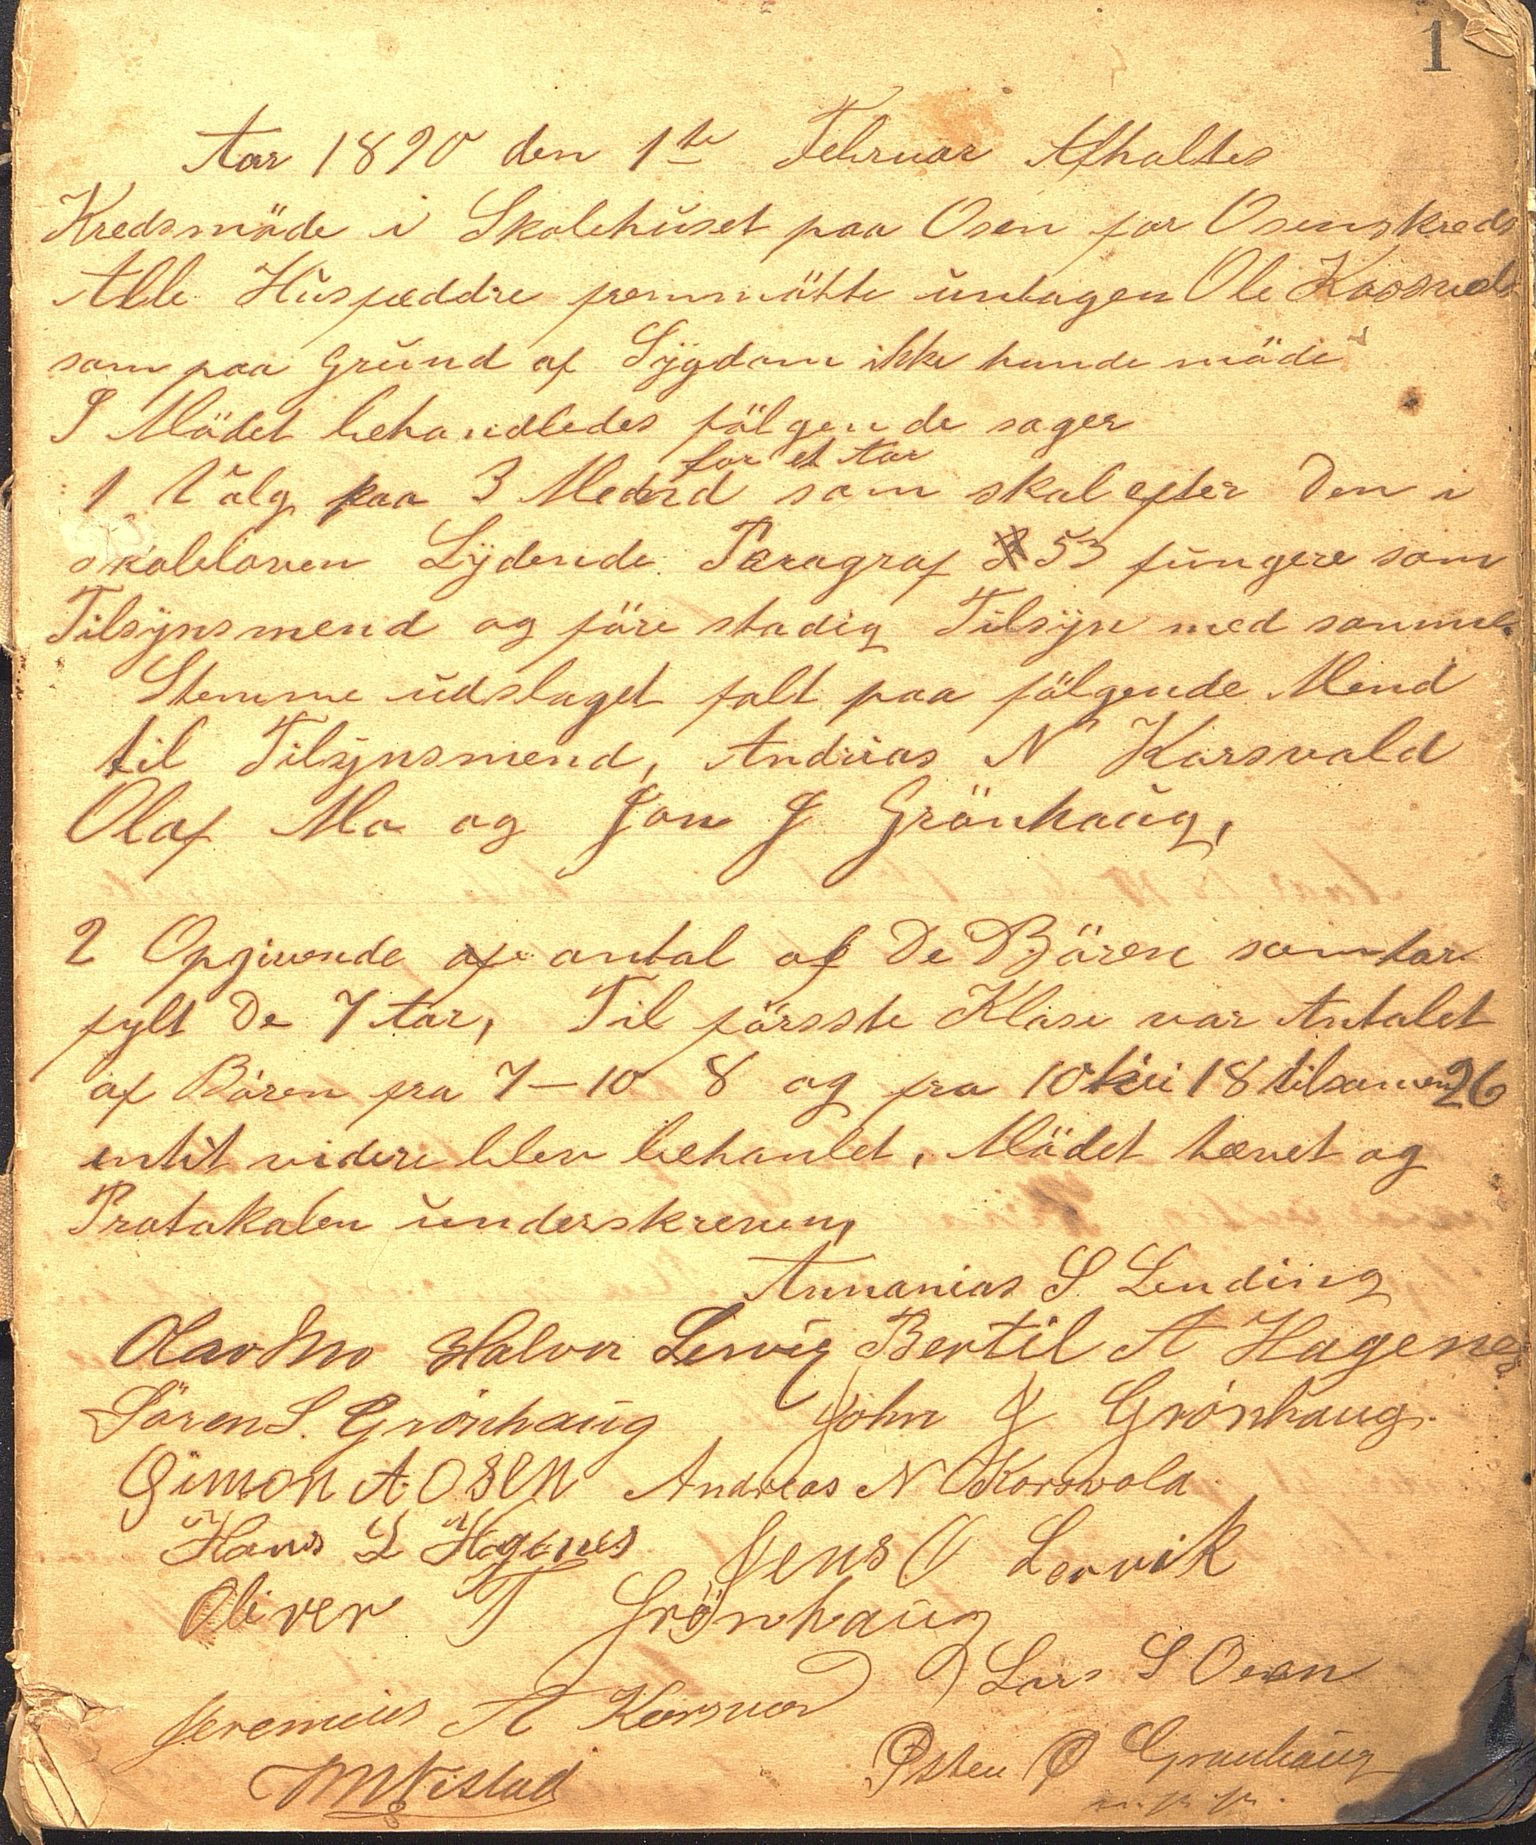 1
Aar 1890 den 1te Februar Afholtes
Kredsmöde i Skolehuset paa Osen for Osenskreds
Alle Husfæddre fremmötte untagen Ole Kassvold
som paa Grund af Sygdom ikke kunde möde
I Mödet behandledes fölgende sager
for et Aar
1 Valg paa 3 Mend som skal efter Den i
skoleloven Lydende Paragraf 53 fungere som
Tilsynsmend og före stadig Tilsyn med samme.
Stemme udslaget falt paa fölgende Mend
til Tilsynsmend, Andrias N Korsvold
Olaf Mo og Jon J Grönhaug,
2 Opgivende af antal af De Bören som har
fylt De 7 Aar, Til försste Klase var Antalet
af Bören fra 7–10 8 og fra 10 18 tilsamen 26
intit videre blev behanlet, Mödet hævet og
Protokolen underskreven,
Annanias S. Lending
Olav Mo Halvor Lervig Bertil A Hagenes
Sören S. Grönhaug John J Grönhaug.
Simon A. Osen Andreas N Korsvold
Hans L Hagenes Jens O Lervik
Oliver T Grönhaug
Lars S Osen
Jeremias A Korsvold
Östen Ö Grönhaug
m. p. p.